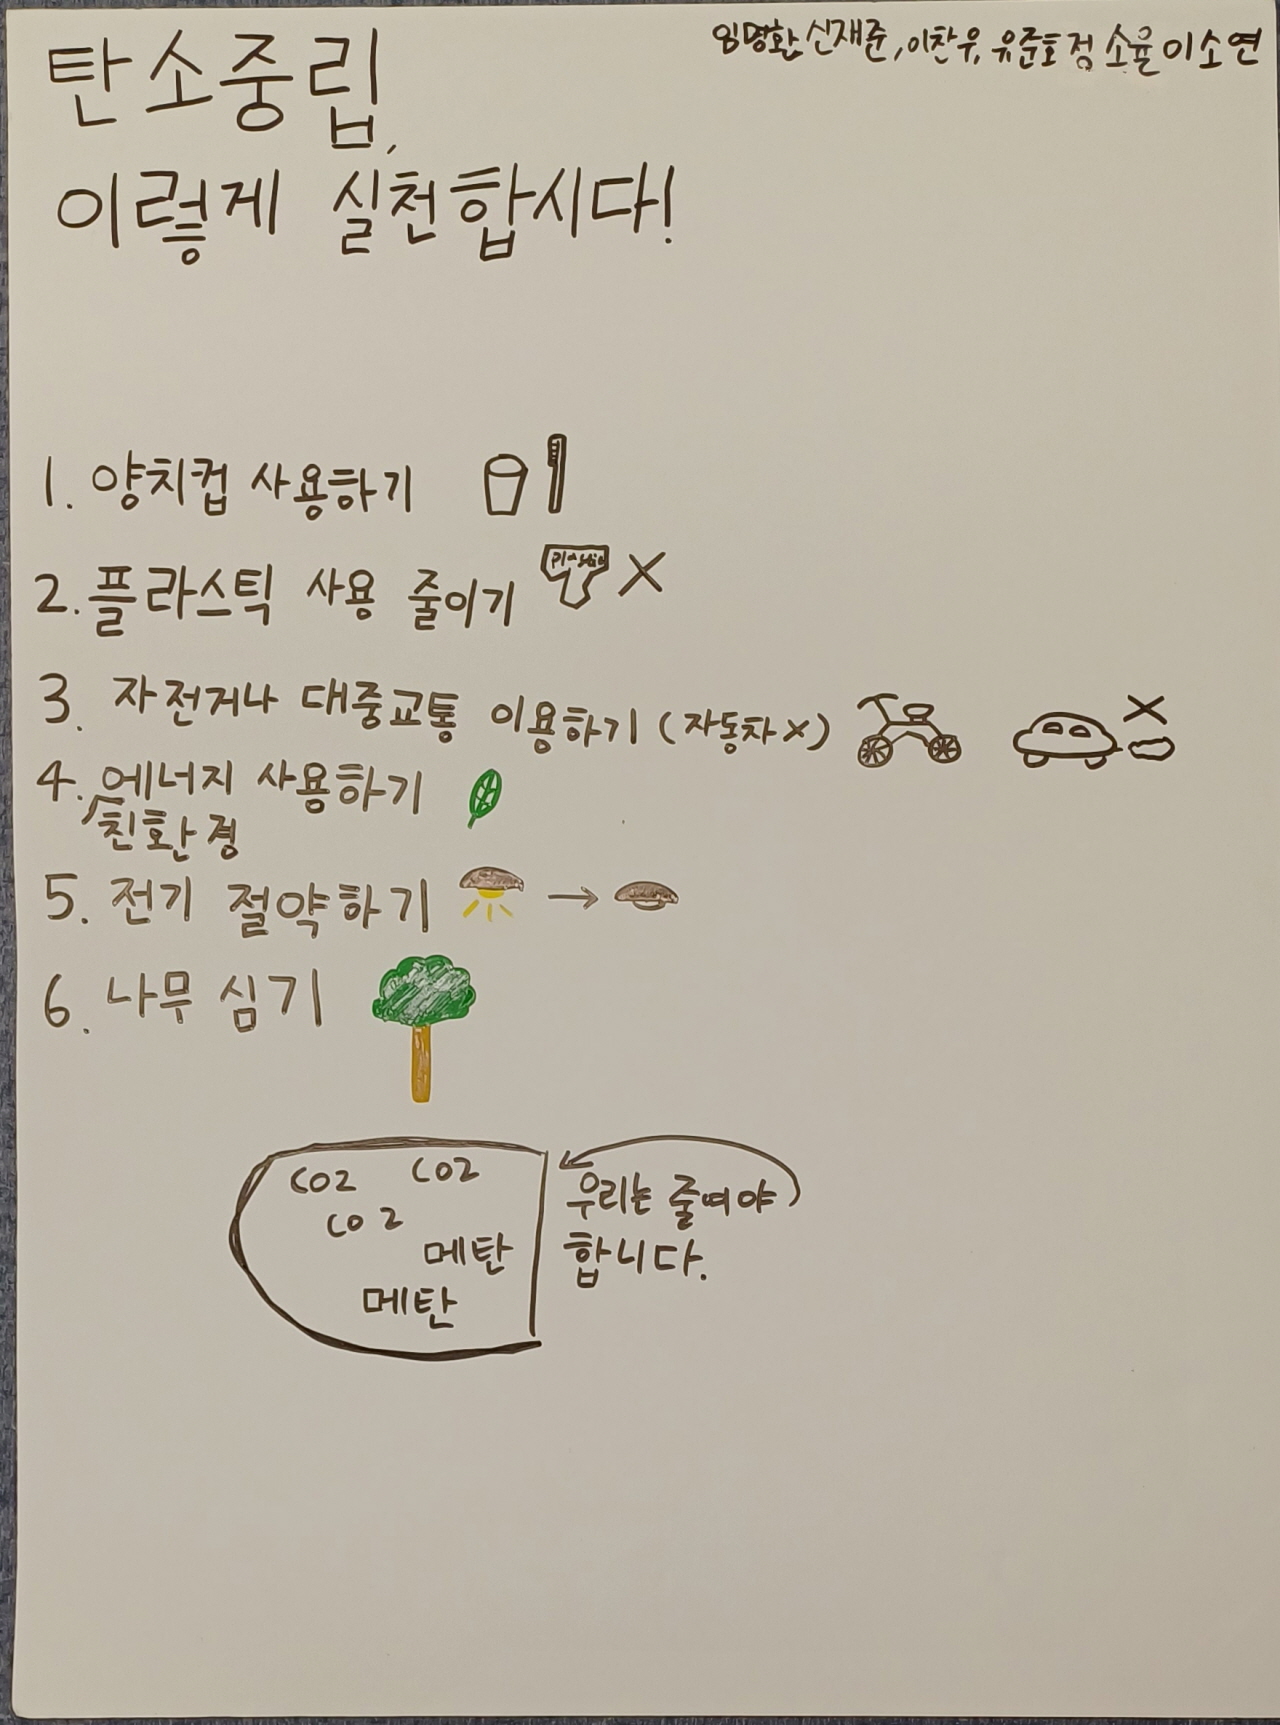 임명환 신재준, 이찬우, 유준호 정소율 이소연
탄소중립,
이렇게 실천합시다!
1. 양치컵 사용하기
2. 플라스틱 사용 줄이기
plastic
X
3. 자전거나 대중교통 이용하기 (자동차 X)
X
4. 친환경 에너지 사용하기
5. 전기 절약하기
6. 나무 심기
CO2 CO2
CO2
메탄
메탄
우리는 줄여야
합니다.